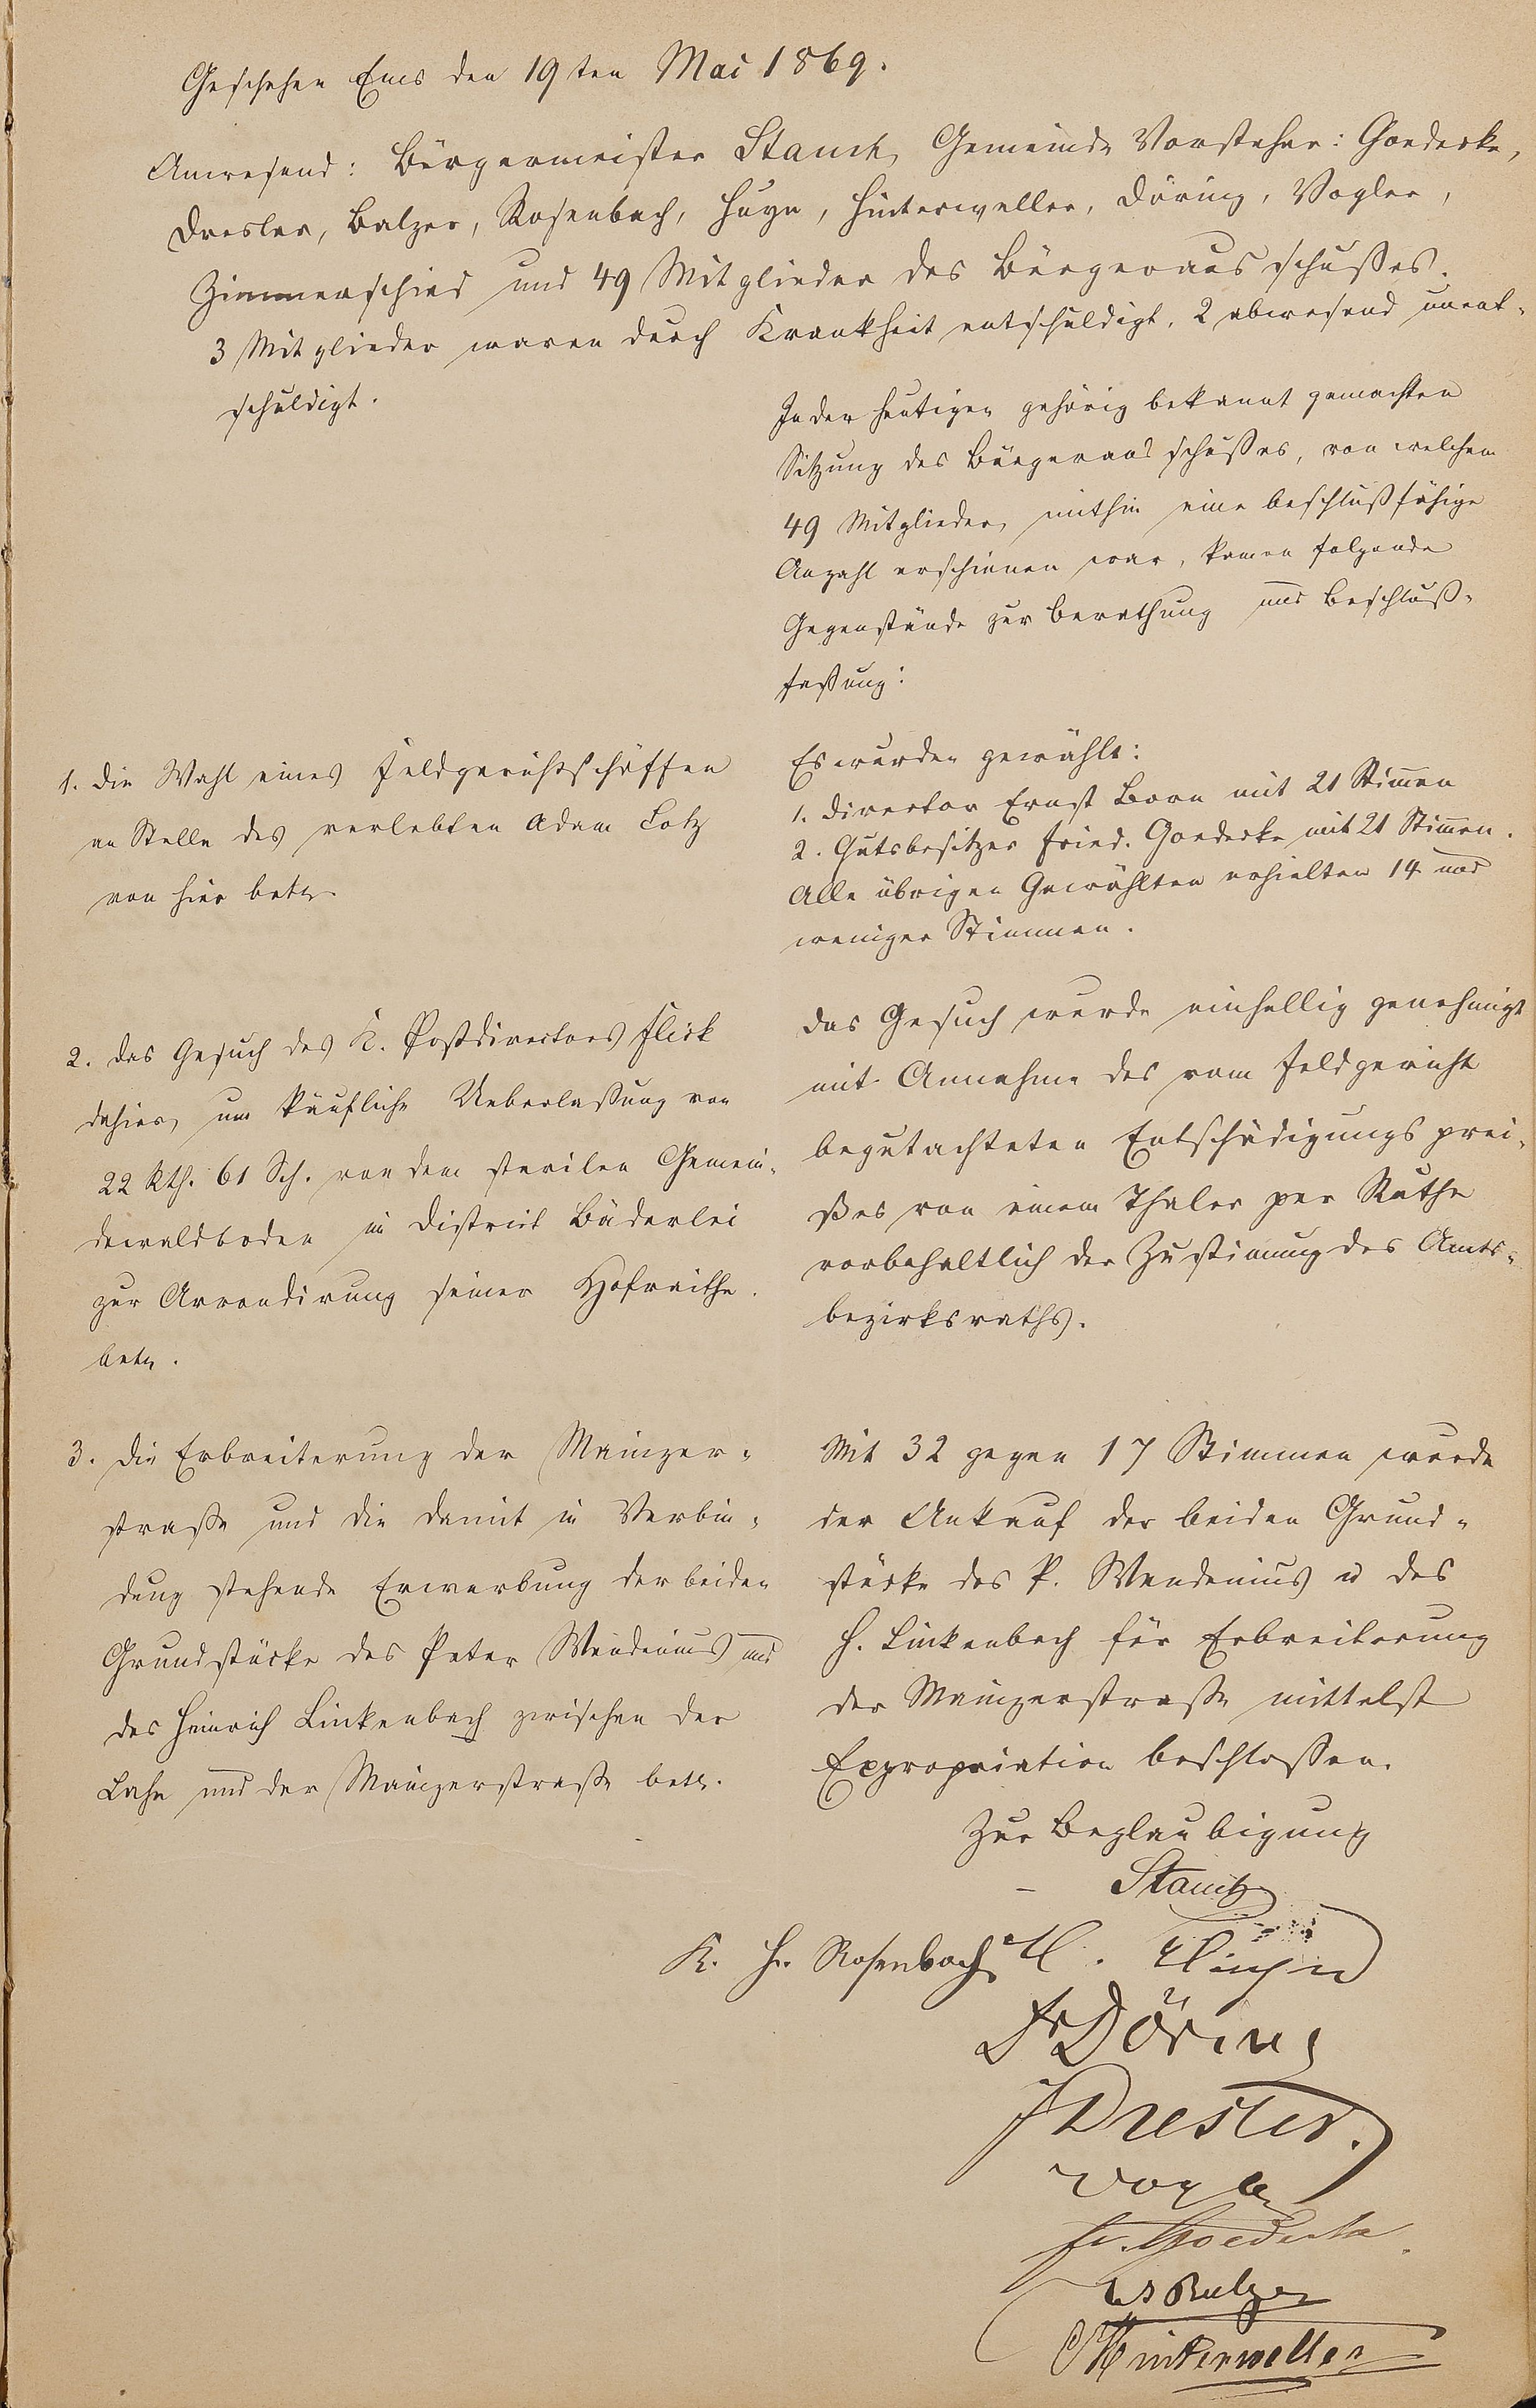 Geschehen Ems den 19ten Mai 1869.
Anwesend: Bürgermeister Stauch, Gemeinde Vorsteher: Goedecke,
Dresler, Balzer, Rosenbach, Huyn, Hinterweller, Döring, Vogler,
Zimmerschied und 49 Mitglieder des Bürgerausschußes.
3 Mitglieder waren durch Krankheit entschuldigt, 2 abwesend unent-
schuldigt.
In der heutigen gehörig bekannt gemachten
Sitzung des Bürgerausschußes, von welchem
49 Mitglieder, mithin eine beschlußfähige
Anzahl erschienen war, kamen folgende
Gegenstände zur Berathung und Beschluß-
faßung:
1. Die Wahl eines Feldgerichtsschöffen
an Stelle des verlebten Adam Lotz
von hier betr.
Es wurden gewählt:
1. Director Ernst Born mit 21 Stimen
2. Gutsbesitzer Fried. Goedecke mit 21 Stimen.
Alle übrigen Gewählten erhielten 14 und
weniger Stimmen.
2. Das Gesuch des K. Postdirectors Flick
dahier, um käufliche Ueberlaßung von
22 Rth. 61 Sch. von dem sterilen Gemein-
dewaldboden im District Bäderlei
zur Arrondirung seiner Hofraithe.
betr.
Das Gesuch wurde einhellig genehmigt
mit Annahme des vom Feldgericht
begutachteten Entschädigungsprei-
ßes von einem Thaler per Ruthe
vorbehaltlich der Zustimung des Amts-
bezirksraths.
3. Die Erbreiterung der Mainzer-
straße und die damit in Verbin-
dung stehende Erwerbung der beiden
Grundstücke des Peter Wendenius und
des Heinrich Linkenbach zwischen der
Lahn und der Mainzerstraße betr.
Mit 32 gegen 17 Stimmen wurde
der Ankauf der beiden Grund-
stücke des P. Wendenius u des
H. Linkenbach für Erbreiterung
der Mainzerstraße mittelst
Expropriation beschloßen.
Zur Beglaubigung
Stauch
K. H. Rosenbach
Fr Döring
J Dresler.
Vogler
Fr. Goedecke
Balzer
Hinterweller